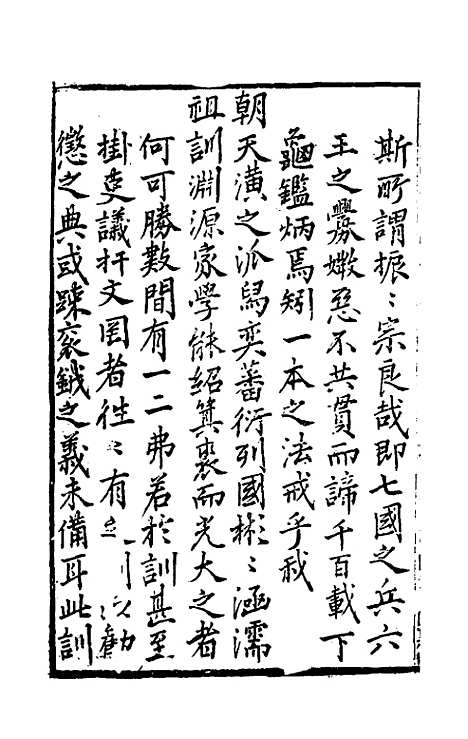 斯所謂振〻宗良哉即七國之兵六
王之釁媺惡不共貫而諦千百載下
龜鑑炳焉矧一本之法戒乎我
朝天潢之派舄奕蕃衍列國彬〻涵濡
祖訓淵源家學能紹箕裘而光大之者
何可勝數間有一二弗若於訓甚至
掛吏議扞文罔者往〻有
懲之典或踈袞鉞之義未備耳此訓